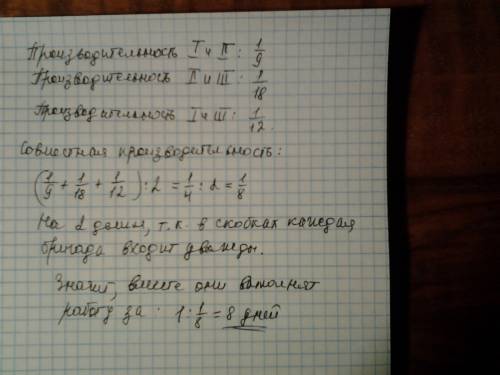 Производительность I и II: 1/9
Производительность II и III: 1/18
Производительность I и III: 1/12.
Совместная производительность:
(1/9 + 1/18 + 1/12) : 2 = 1/4 : 2 = 1/8
На 2 делим, т.к. в скобках каждая
бригада входит дважды.
Значит, вместе они выполнят
работу за 1 : 1/8 = 8 дней